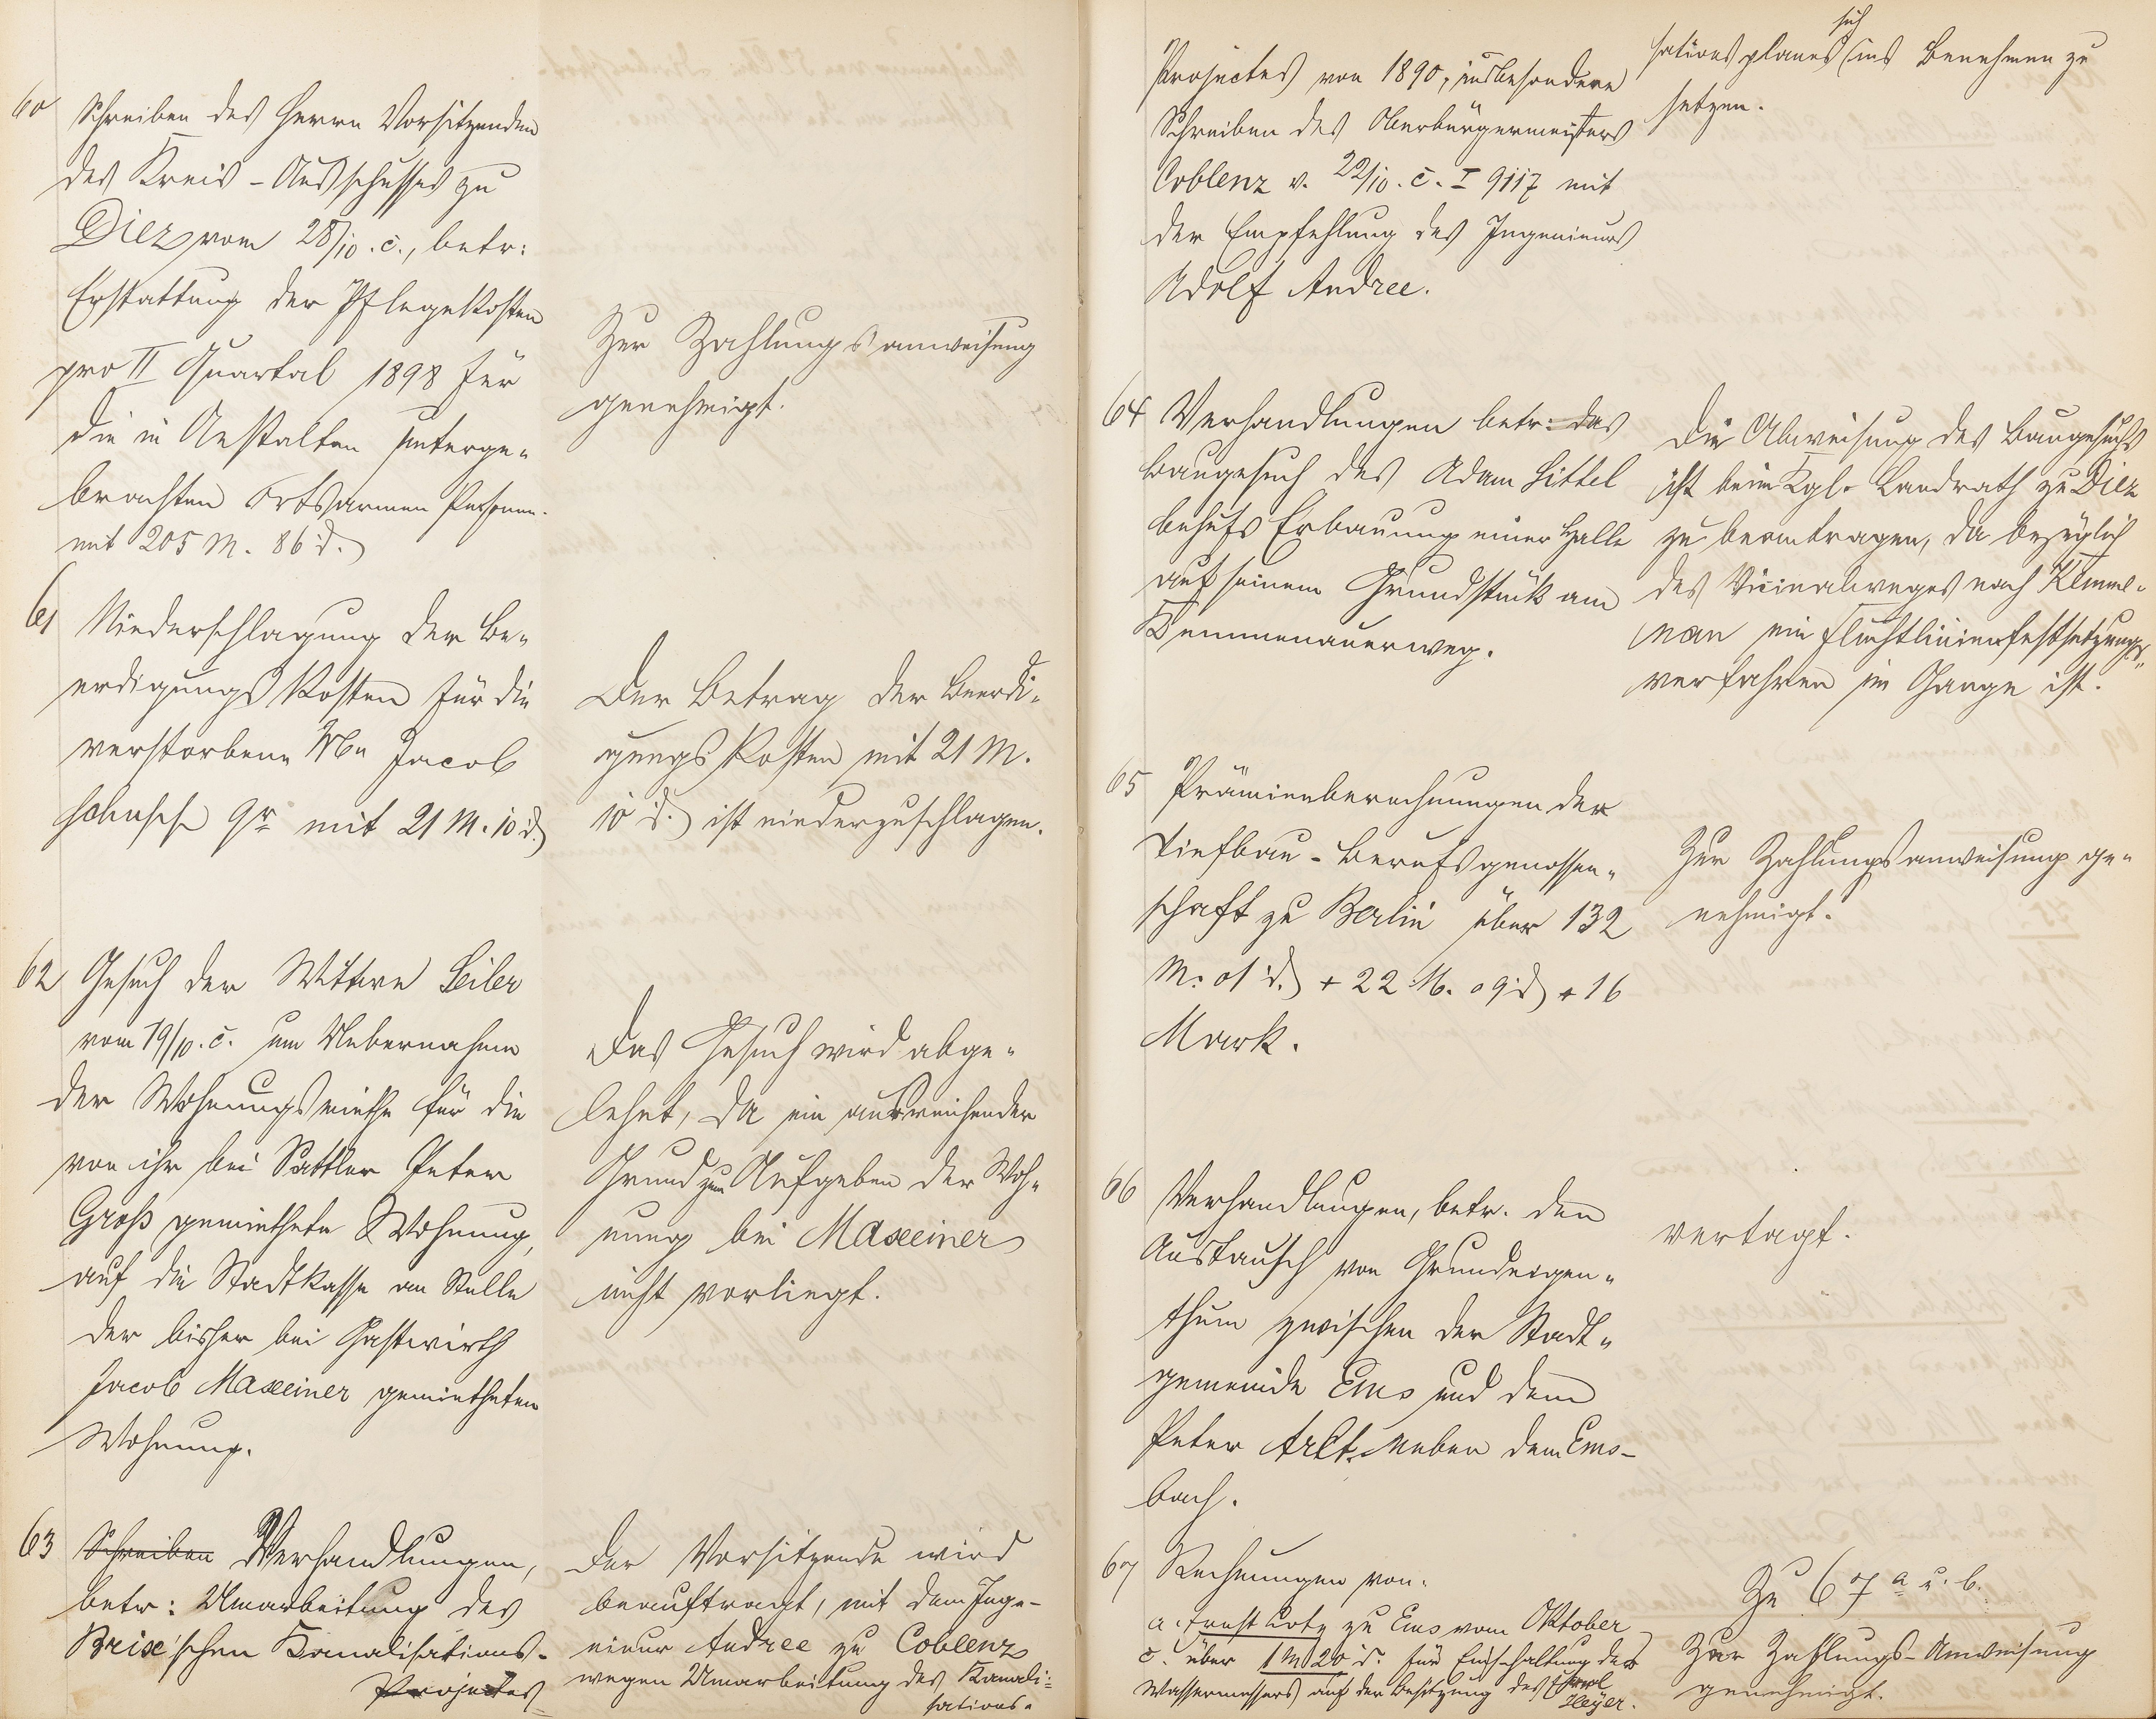 60 Schreiben des Herrn Vorsitzenden
des Kreis-Ausschusses zu
Diez vom 28/10. c., betr:
Erstattung der Pflegekosten
pro II Quartal 1898 für
die in Anstalten unterge-
brachten Ortsarmen Personen
mit 205 M. 86 d.
Zur Zahlungsanweisung
genehmigt.
61 Niederschlagung der Be-
erdigungskosten für die
verstorbene Jacob
mit 21 M. 10 d.
Der Betrag der Beerdi-
gungskosten mit 21 M.
10 d. ist niederzuschlagen.
62 Gesuch der Wittwe Leiler
vom 19/10. c. um Uebernahme
der Wohnungsmiethe für die
von ihr bei Sattler Peter
Groß gemiethete Wohnung,
auf die Stadtkasse an Stelle
der bisher bei Gastwirth
Jacob Maxeiner gemietheten
Wohnung.
Das Gesuch wird abge-
lehnt, da ein ausreichender
Grund zum Aufgeben der Woh-
nung bei Maxeiner
nicht vorliegt.
63 Schreiben Verhandlungen,
betr: Umarbeitung des
Brix'schen Kanalisations-
Projectes
Der Vorsitzende wird
beauftragt, mit dem Inge-
nieur Andree zu Coblenz
wegen Umarbeitung des Kanali-
sations-
Projectes von 1890, insbesondere
Schreiben des Oberbürgermeisters
Coblenz v. 22/10. c. I 9117 mit
der Empfehlung des Ingenieurs
Adolf Andree.
sationsplanes sich ins Benehmen zu
setzen.
64 Verhandlungen betr: das
Baugesuch des Adam Littel
behufs Erbauung einer Halle
auf seinem Grundstück am
Kemmenauerweg.
Die Abweisung des Baugesuchs
ist beim Kgl. Landrath zu Diez
zu beantragen, da bezüglich
des Vicinalweges nach Kemme-
nau ein Fluchtlinienfestsetzungs-
verfahren im Gange ist.
65 Prämienberechnungen der
Tiefbau-Berufsgenossen-
schaft zu Berlin über 132
M. 01 d. + 22 M. 09 d + 16
Mark.
Zur Zahlungsanweisung ge-
nehmigt.
66 Verhandlungen, betr. den
Austausch von Grundeigen-
thum zwischen der Stadt-
gemeinde Ems und dem
Peter Arlt. neben dem Ems-
bach.
vertagt.
67 Rechnungen von:
a. Ernst Lotz zu Ems vom Oktober
c. über 1 M 20 d. für Einschaltung des
Wassermessers auf der Besitzung des Carl
Heyer.
Zu 67 a u. b.
Zur Zahlungs-Anweisung
genehmigt.